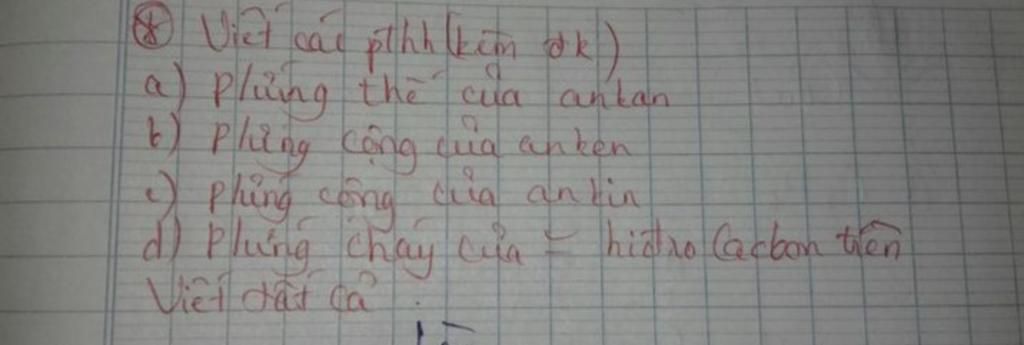 * Viết các pthh (kèm đk)
a) Phứng thế của ankan
b) Phứng cộng của anken
c) Phứng cộng của ankin
d) Phứng cháy của hiđro cacbon trên
Viết tất cả.